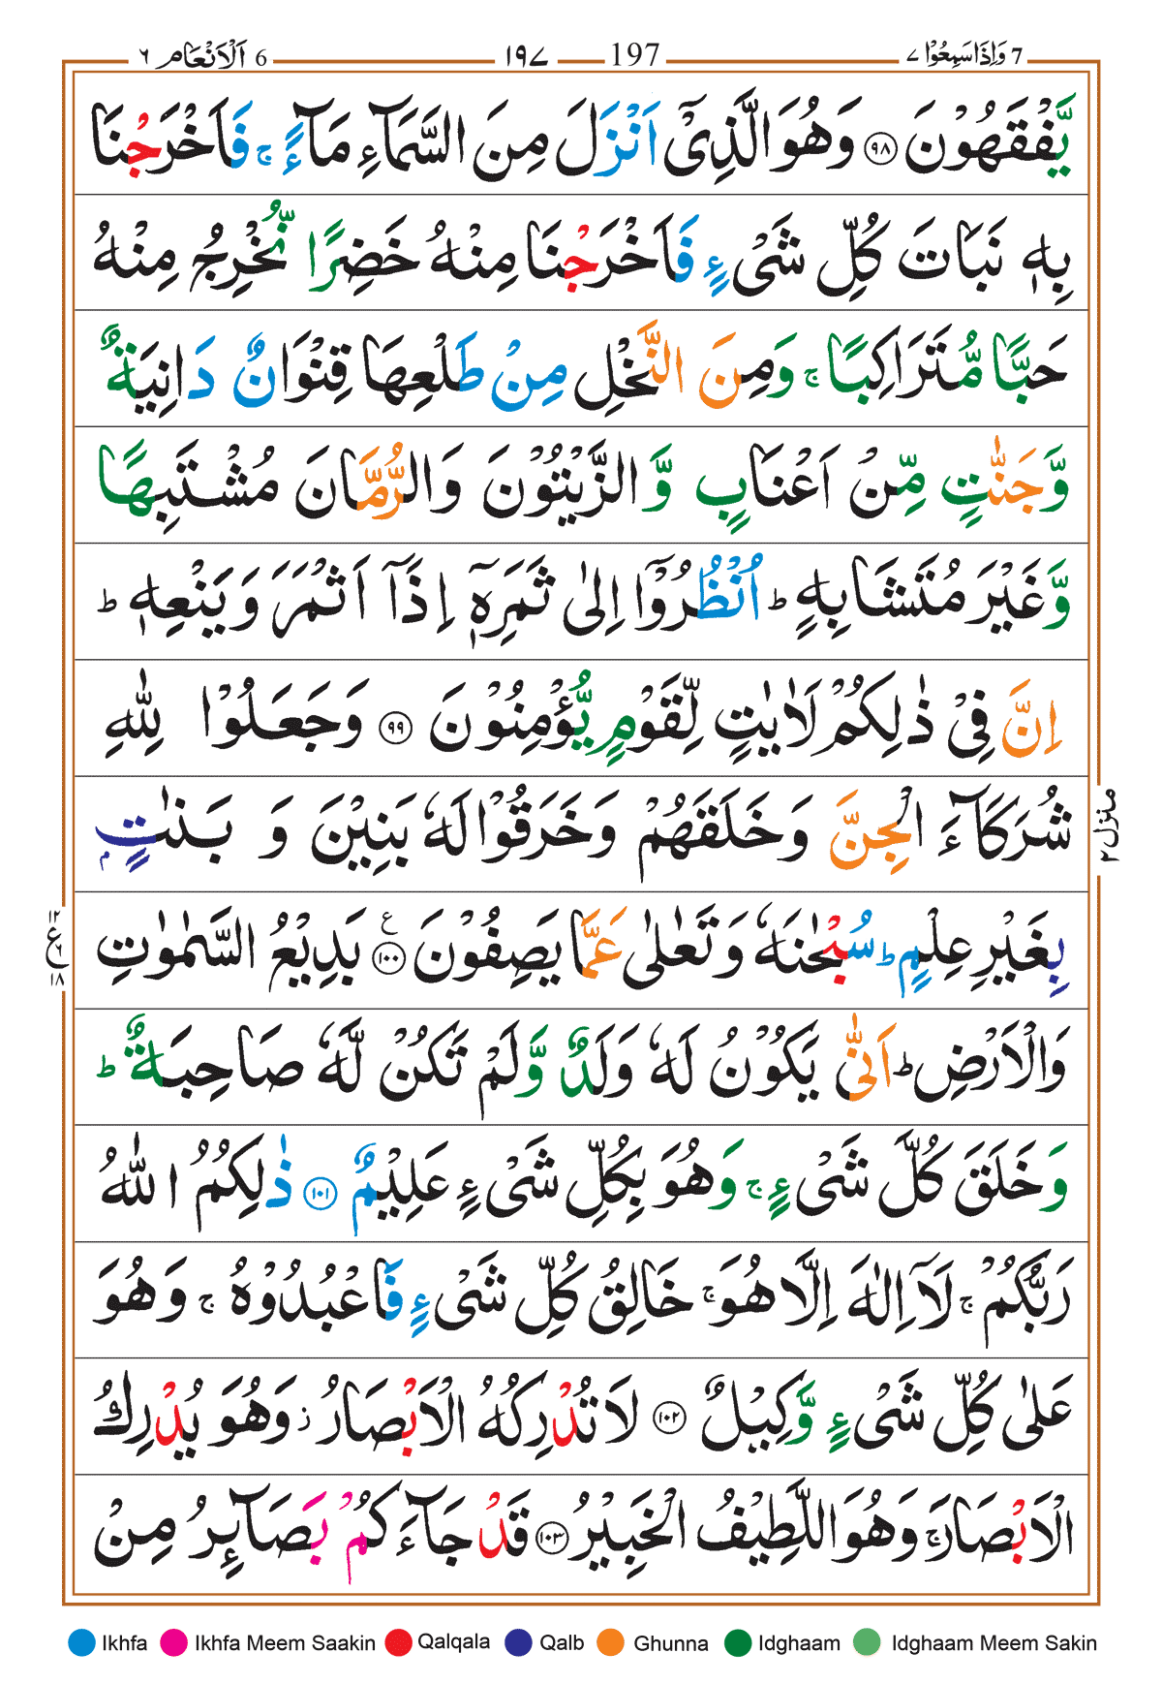 7 وَاِذَاسَمِعُوْا ٧ 197 ١٩٧ 6 اَلْاَنْعَام ٦
يَّفْقَهُوْنَ ﴿٩٨﴾ وَهُوَ الَّذِيْۤ اَنْزَلَ مِنَ السَّمَآءِ مَآءً ۚ فَاَخْرَجْنَا
بِهٖ نَبَاتَ كُلِّ شَيْءٍ فَاَخْرَجْنَا مِنْهُ خَضِرًا نُّخْرِجُ مِنْهُ
حَبًّا مُّتَرَاكِبًا ۚ وَمِنَ النَّخْلِ مِنْ طَلْعِهَا قِنْوَانٌ دَانِيَةٌ
وَّجَنّٰتٍ مِّنْ اَعْنَابٍ وَّالزَّيْتُوْنَ وَالرُّمَّانَ مُشْتَبِهًا
وَّغَيْرَ مُتَشَابِهٍ ؕ اُنْظُرُوْۤا اِلٰى ثَمَرِهٖۤ اِذَاۤ اَثْمَرَ وَيَنْعِهٖ ؕ
اِنَّ فِيْ ذٰلِكُمْ لَاٰيٰتٍ لِّقَوْمٍ يُّؤْمِنُوْنَ ﴿٩٩﴾ وَجَعَلُوْا لِلّٰهِ
شُرَكَآءَ الْجِنَّ وَخَلَقَهُمْ وَخَرَقُوْا لَهٗ بَنِيْنَ وَ بَنٰتٍۭ
منزل ٢
بِغَيْرِ عِلْمٍ ؕ سُبْحٰنَهٗ وَتَعٰلٰى عَمَّا يَصِفُوْنَ ﴿١٠٠﴾ ع بَدِيْعُ السَّمٰوٰتِ
١٢ ع ٦ ١٨
وَالْاَرْضِ ؕ اَنّٰى يَكُوْنُ لَهٗ وَلَدٌ وَّلَمْ تَكُنْ لَّهٗ صَاحِبَةٌ ؕ
وَخَلَقَ كُلَّ شَيْءٍ ۚ وَهُوَ بِكُلِّ شَيْءٍ عَلِيْمٌ ﴿١٠١﴾ ذٰلِكُمُ اللّٰهُ
رَبُّكُمْ ۚ لَاۤ اِلٰهَ اِلَّا هُوَ ۚ خَالِقُ كُلِّ شَيْءٍ فَاعْبُدُوْهُ ۚ وَهُوَ
عَلٰى كُلِّ شَيْءٍ وَّكِيْلٌ ﴿١٠٢﴾ لَا تُدْرِكُهُ الْاَبْصَارُ ؗ وَهُوَ يُدْرِكُ
الْاَبْصَارَ ۚ وَهُوَ اللَّطِيْفُ الْخَبِيْرُ ﴿١٠٣﴾ قَدْ جَآءَكُمْ بَصَآئِرُ مِنْ
Ikhfa Ikhfa Meem Saakin Qalqala Qalb Ghunna Idghaam Idghaam Meem Sakin